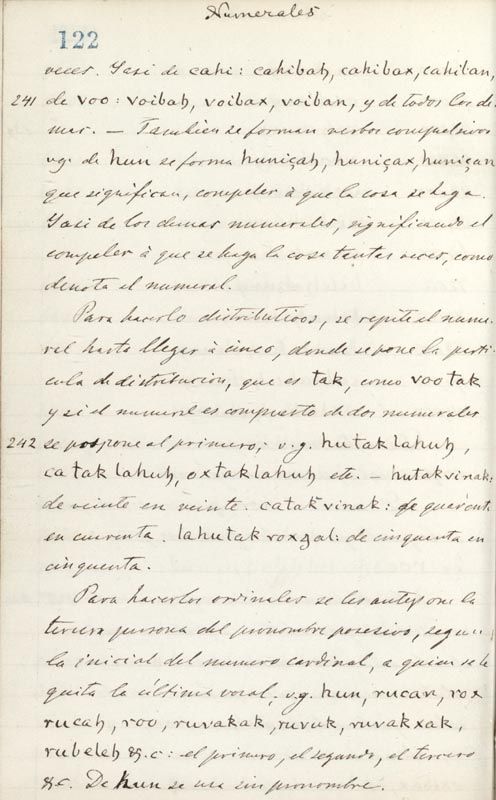 Numerales
122
veces. Y asi de cahi: cahibah, cahibax, cahiban,
241 de voo: voibah, voibax, voiban, y de todos los de
mas. — Tambien se forman verbos compulsivos
vg. de hun se forma huniçah, huniçax, huniçan
que significan, compeler à que la cosa se haga.
Y asi de los demas numerales, significando el
compeler à que se haga la cosa tantas veces, como
denota el numeral.
Para hacerlo distributivos, se repite el nume-
ral hasta llegar à cinco, donde se pone la parti
cula de distribucion, que es tak, como vootak
y si el numeral es compuesto de dos numerales
242 se pospone al primero; v.g. hutaklahuh,
cataklahuh, oxtaklahuh etc. — hutakvinak:
de veinte en veinte. catakvinak: de quarenta
en cuarenta. lahutak roxgal: de cinquenta en
cinquenta.
Para hacerlos ordinales se les antepone la
tercera persona del pronombre posesivo, segun
la inicial del numero cardinal, a quien se le
quita la última vocal; v.g. hun, rucan, rox
rucah, roo, ruvakak, ruvuk, ruvakxak,
rubeleh &.c: el primero, el segundo, el tercero
&c. De hun se usa sin pronombre.